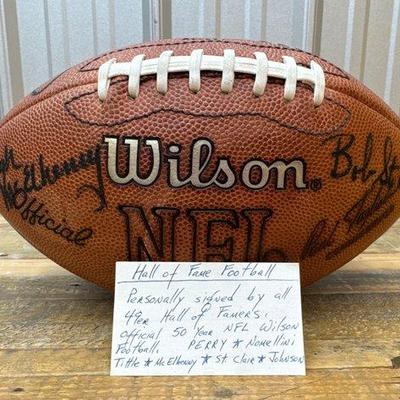 McElhenny
Wilson®
Bob St
Official
NFL
Hall of Fame Football
Personally signed by all
49er Hall of Famers.
Official 50 Year NFL Wilson
Football. PERRY * Nomellini
Tittle * McElhenny * St Clair * Johnson